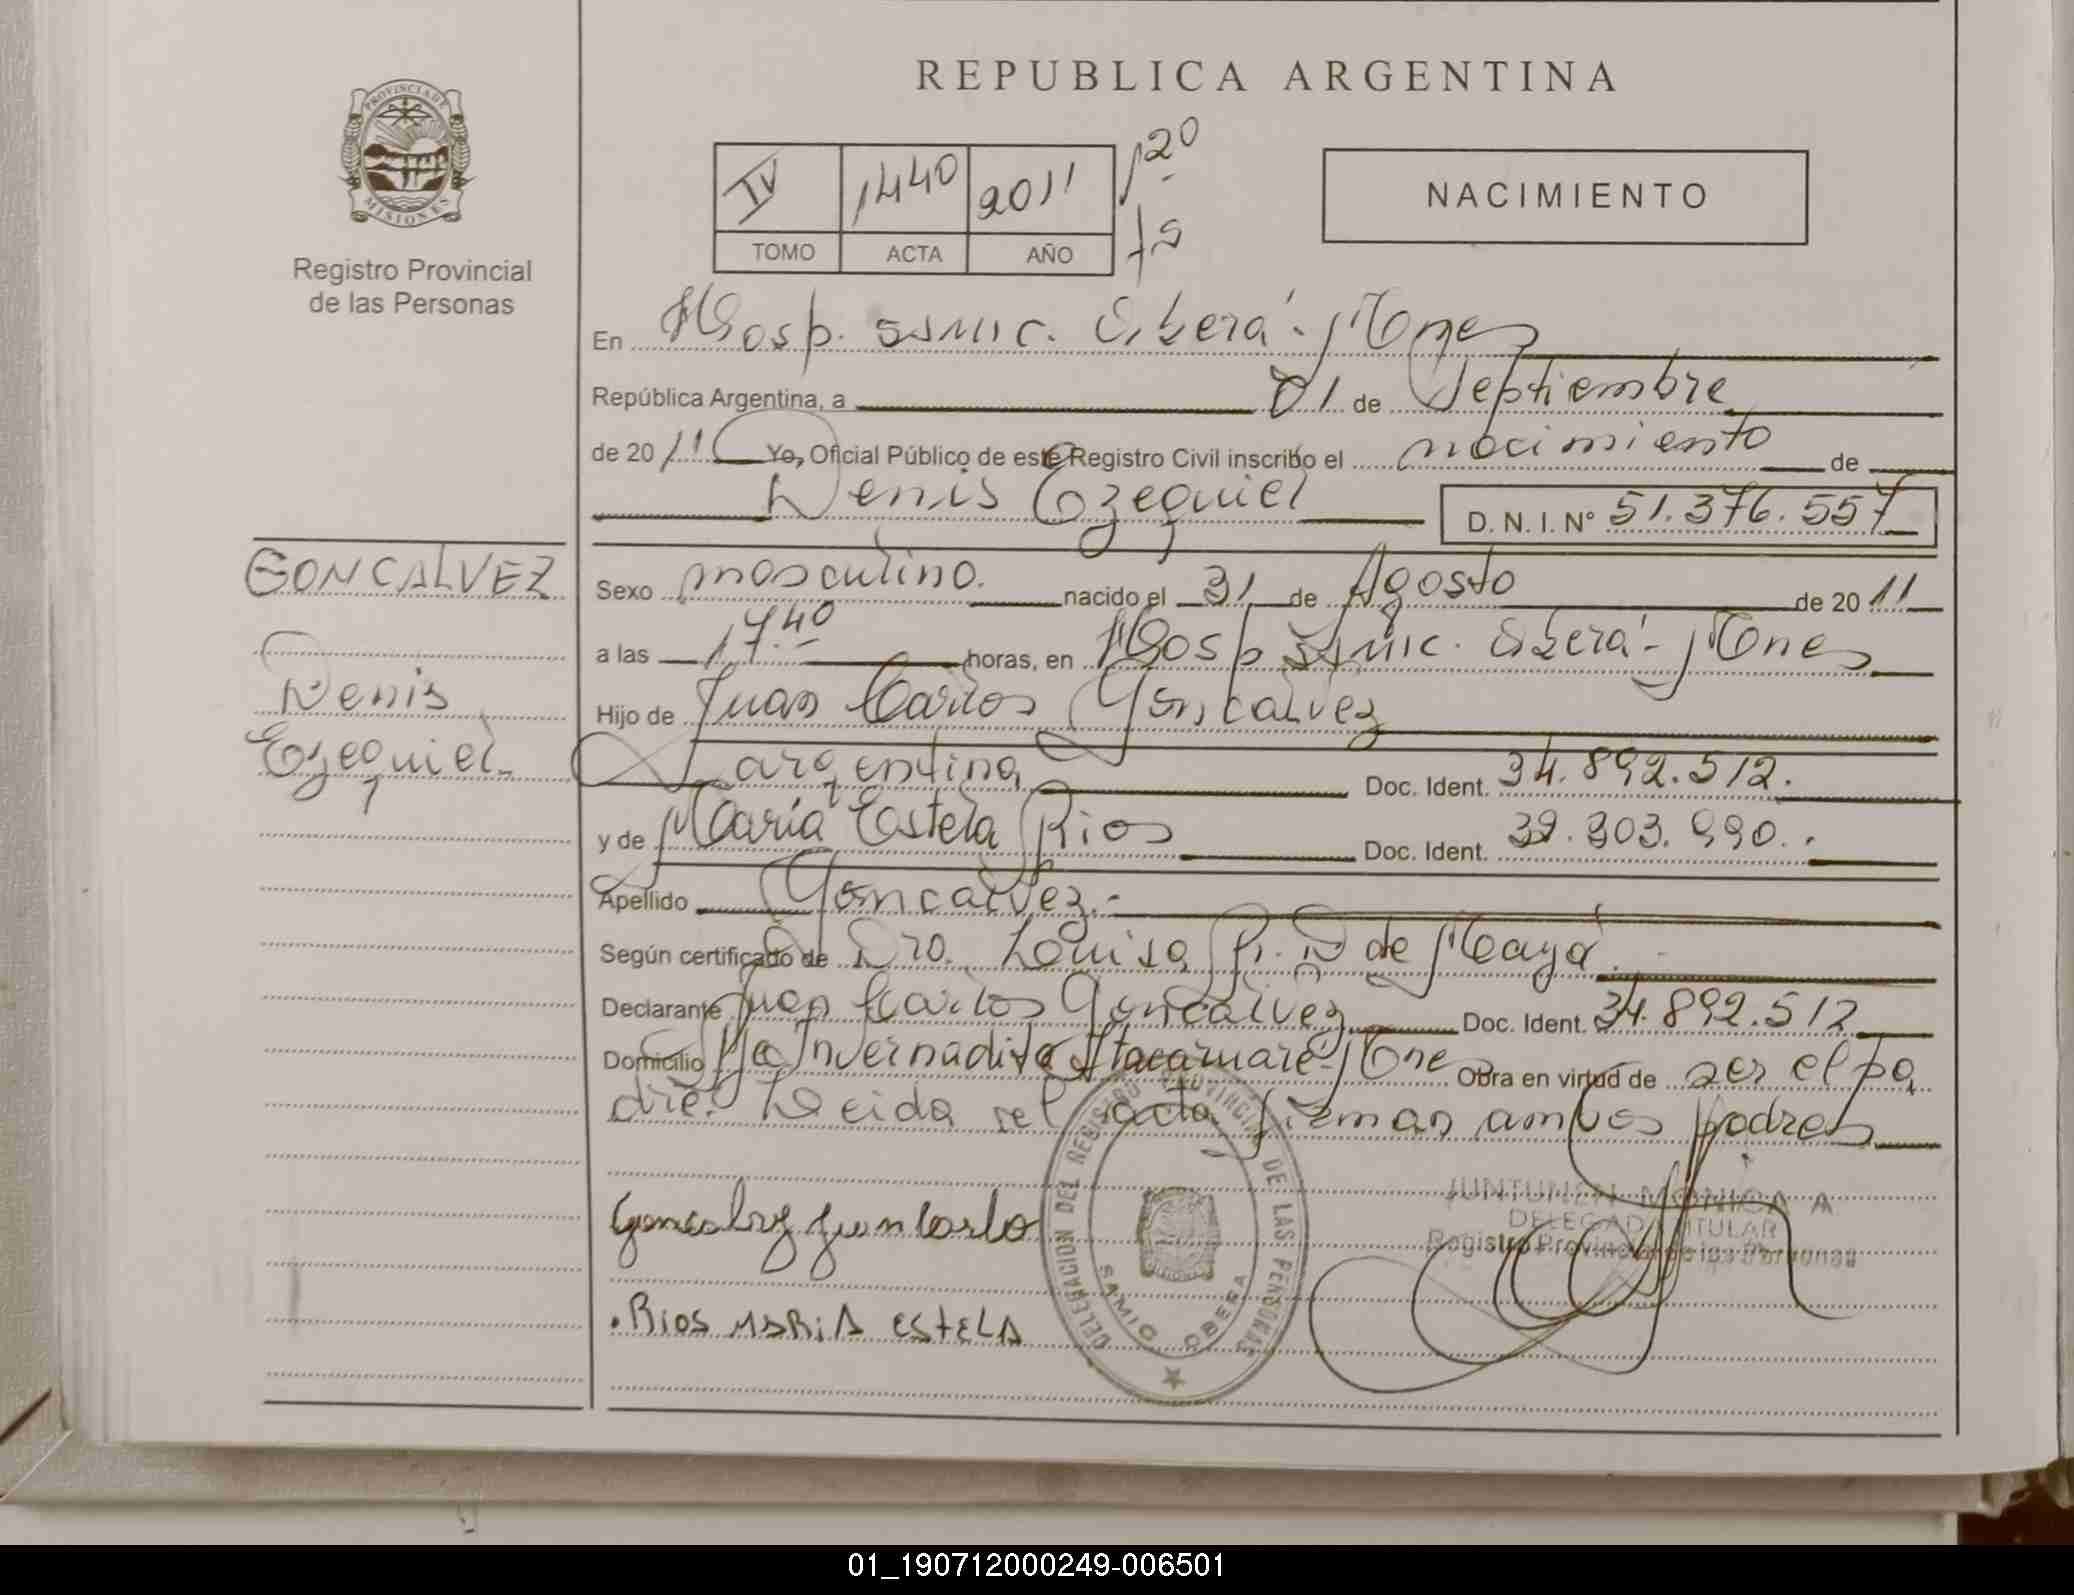 REPUBLICA ARGENTINA
PROVINCIA DE MISIONES
Registro Provincial
de las Personas
IV 1440 2011
TOMO ACTA AÑO
NACIMIENTO
En Hosp. SAMIC. Oberá - Mnes
República Argentina, a 01 de Septiembre
de 2011 Yo, Oficial Público de este Registro Civil inscribo el nacimiento de
Denis Ezequiel D. N. I. N° 51.376.557
GONCALVEZ
Denis
Ezequiel.
Sexo masculino. nacido el 31 de Agosto de 2011
a las 17.40 horas, en Hosp SAMIC. Oberá - Mnes
Hijo de Juan Carlos Goncalvez
argentina Doc. Ident. 34.892.512.
y de María Estela Rios Doc. Ident. 39.303.990.
Apellido Goncalvez.-
Según certificado de Dra. Louisa de Maya
Declarante Juan Carlos Goncalvez Doc. Ident. 34.892.512
Domicilio Invernadita Itacaruaré - Mne Obra en virtud de ser el pa
dre. Leida el acta firman ambos padres
Goncalvez Juan Carlo
RIOS MARIA ESTELA
DELEGACION DEL REGISTRO PROVINCIAL DE LAS PERSONAS
SAMIC OBERA
JUNTUNEN MONICA A
DELEGADA TITULAR
Registro Provincial de las Personas
01_190712000249-006501